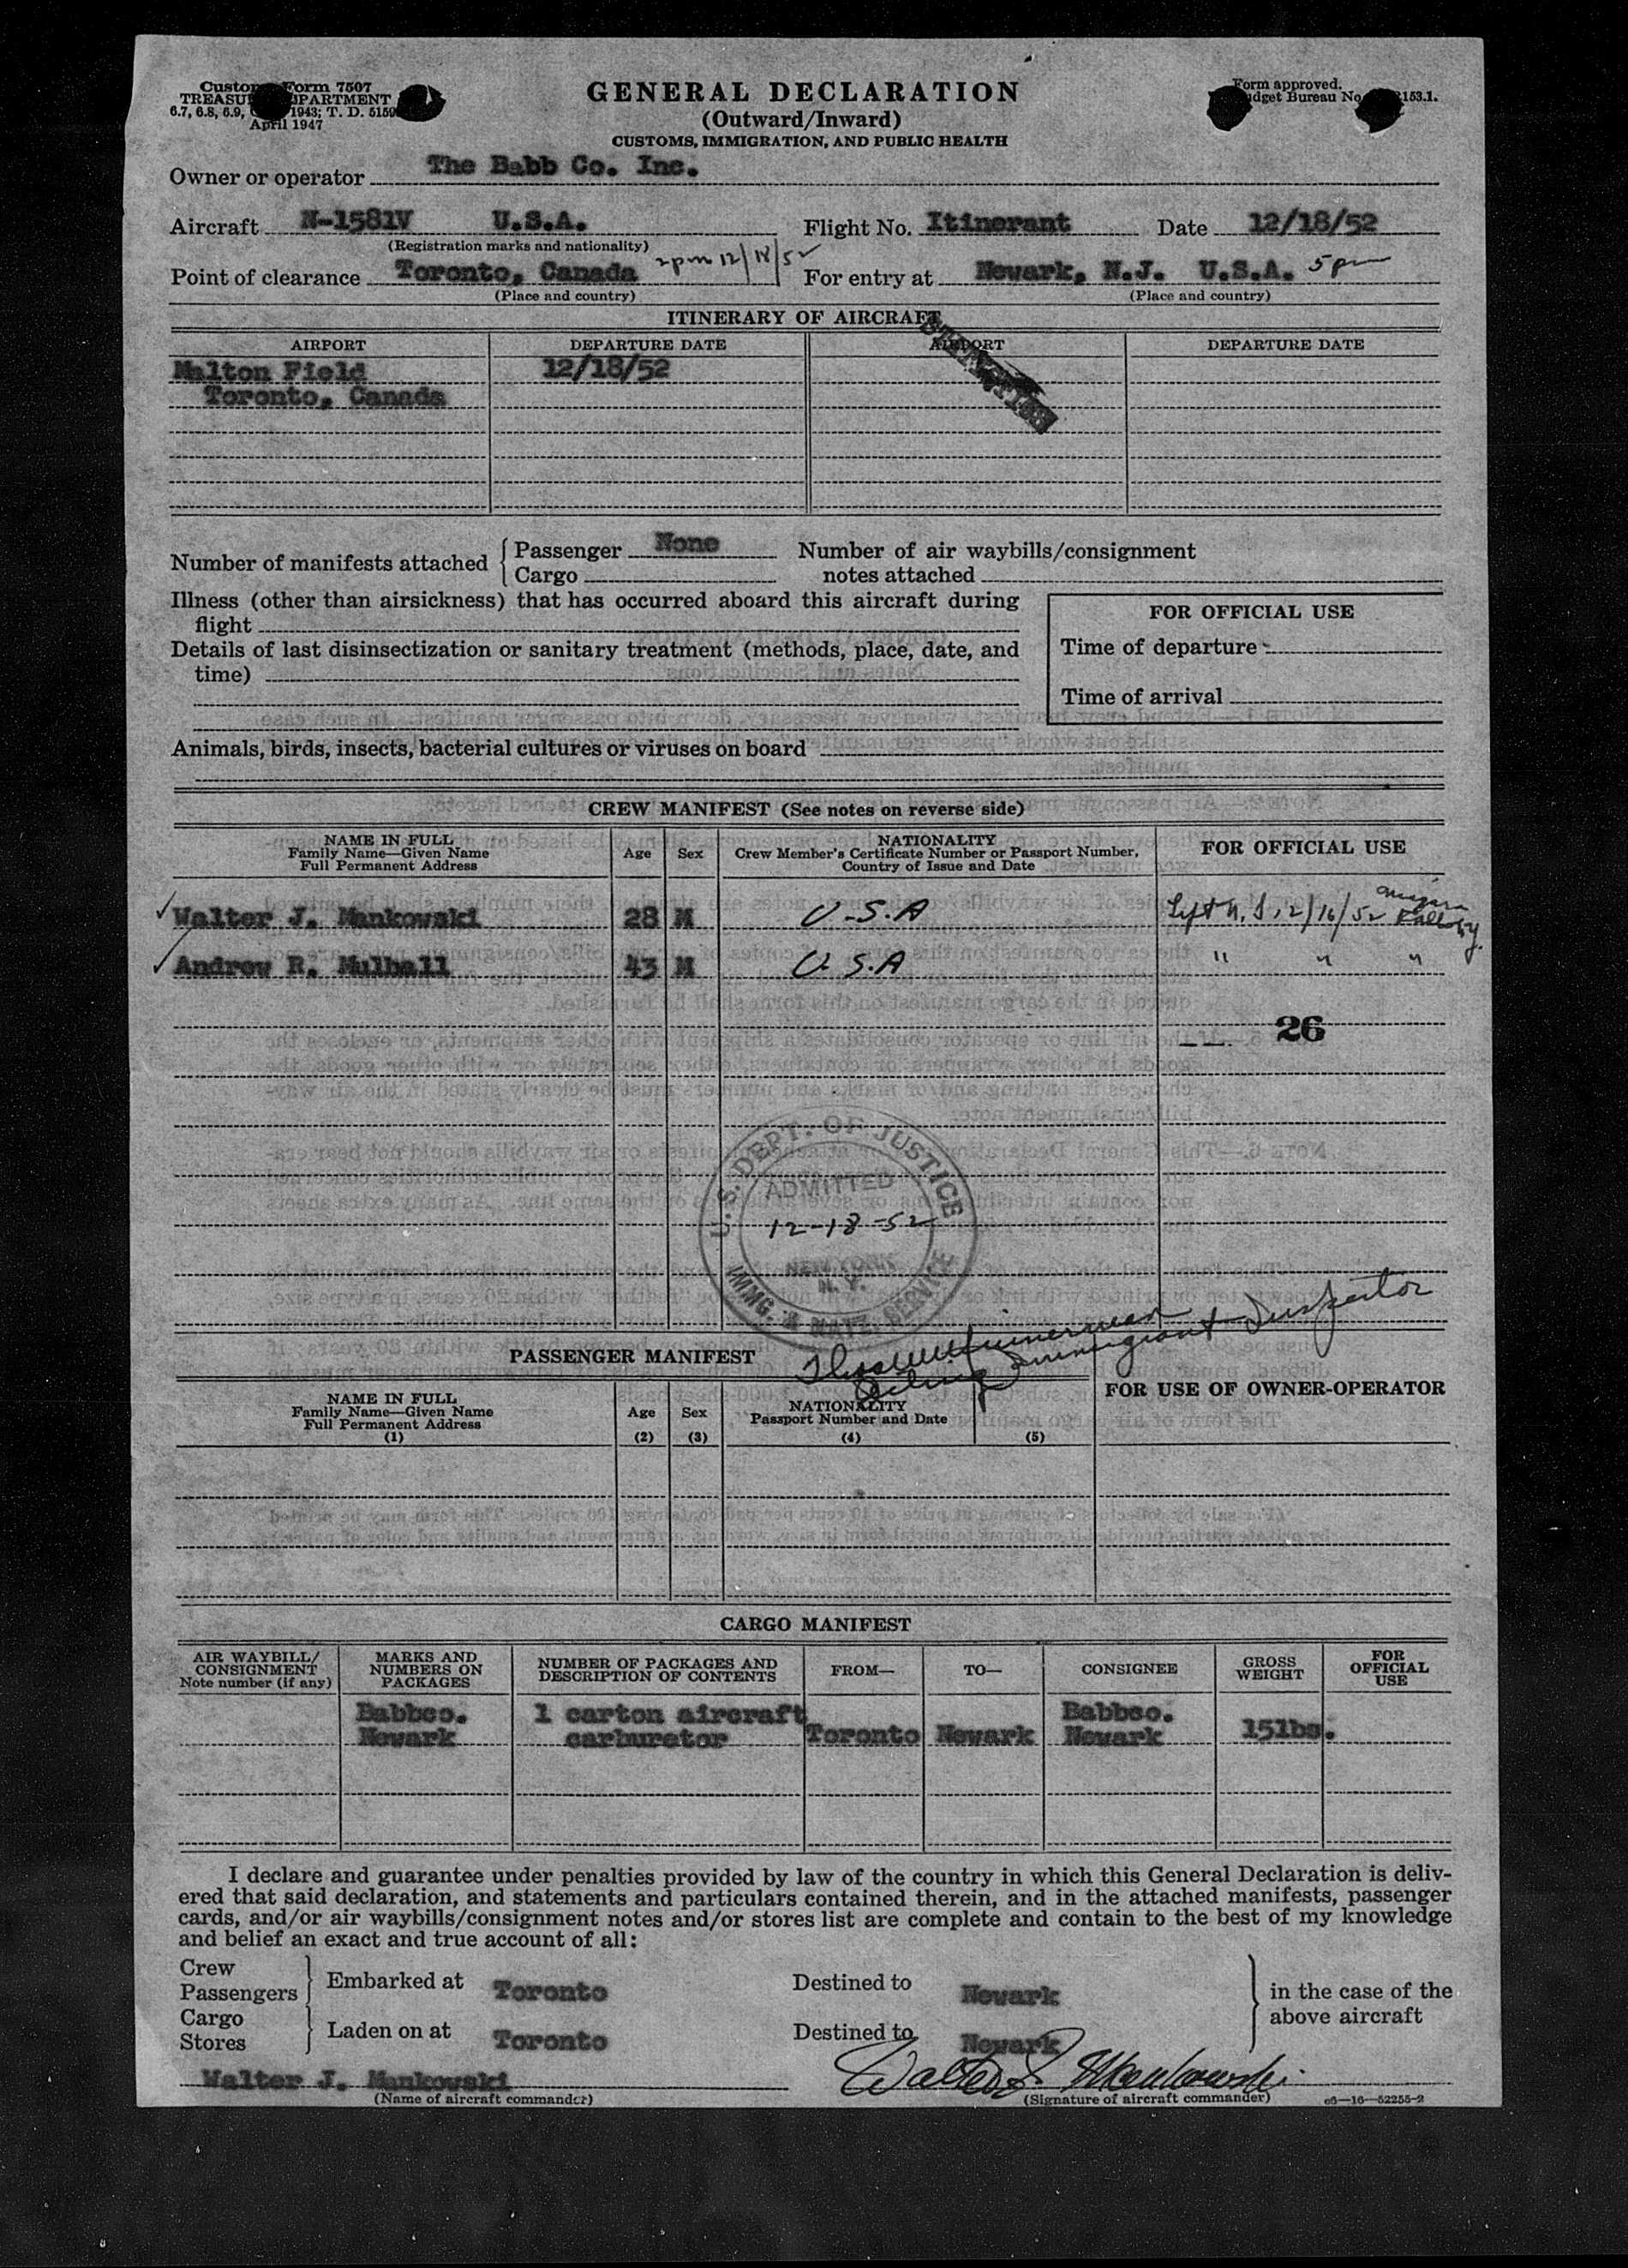 Customs Form 7507
TREASURY DEPARTMENT
6.7, 6.8, 6.9, 1943; T. D. 5159
April 1947
GENERAL DECLARATION
(Outward/Inward)
CUSTOMS, IMMIGRATION, AND PUBLIC HEALTH
Form approved.
Budget Bureau No. 153.1.
Owner or operator The Babb Co. Inc.
Aircraft N-1581V U.S.A. Flight No. Itinerant Date 12/18/52
(Registration marks and nationality)
Point of clearance Toronto, Canada 2pm 12/18/52 For entry at Newark, N.J. U.S.A. 5pm
(Place and country) (Place and country)
ITINERARY OF AIRCRAFT
AIRPORT DEPARTURE DATE AIRPORT DEPARTURE DATE
Malton Field 12/18/52
Toronto, Canada
Number of manifests attached Passenger None Number of air waybills/consignment
Cargo notes attached
Illness (other than airsickness) that has occurred aboard this aircraft during
flight
FOR OFFICIAL USE
Details of last disinsectization or sanitary treatment (methods, place, date, and
time)
Time of departure
Time of arrival
Animals, birds, insects, bacterial cultures or viruses on board
CREW MANIFEST (See notes on reverse side)
NAME IN FULL
Family Name—Given Name
Full Permanent Address
Age
Sex
NATIONALITY
Crew Member's Certificate Number or Passport Number,
Country of Issue and Date
FOR OFFICIAL USE
Walter J. Mankowski 28 M U-S.A Left U.S. 12/16/52 Niagara Falls N.Y.
Andrew R. Mulhall 43 M U.S.A " " "
26
U.S. DEPT. OF JUSTICE
ADMITTED
12-18-52
NEW YORK
N. Y.
IMMG. & NATZ. SERVICE
Immigrant Inspector
PASSENGER MANIFEST
NAME IN FULL
Family Name—Given Name
Full Permanent Address
(1)
Age
(2)
Sex
(3)
NATIONALITY
Passport Number and Date
(4)
(5)
FOR USE OF OWNER-OPERATOR
CARGO MANIFEST
AIR WAYBILL/
CONSIGNMENT
Note number (if any)
MARKS AND
NUMBERS ON
PACKAGES
NUMBER OF PACKAGES AND
DESCRIPTION OF CONTENTS
FROM—
TO—
CONSIGNEE
GROSS
WEIGHT
FOR
OFFICIAL
USE
Babbco. 1 carton aircraft Babbco.
Newark carburetor Toronto Newark Newark 15lbs.
I declare and guarantee under penalties provided by law of the country in which this General Declaration is deliv-
ered that said declaration, and statements and particulars contained therein, and in the attached manifests, passenger
cards, and/or air waybills/consignment notes and/or stores list are complete and contain to the best of my knowledge
and belief an exact and true account of all:
Crew
Passengers Embarked at Toronto Destined to Newark in the case of the
Cargo above aircraft
Stores Laden on at Toronto Destined to Newark
Walter J. Mankowski Walter J. Mankowski
(Name of aircraft commander) (Signature of aircraft commander) 16—52255-2